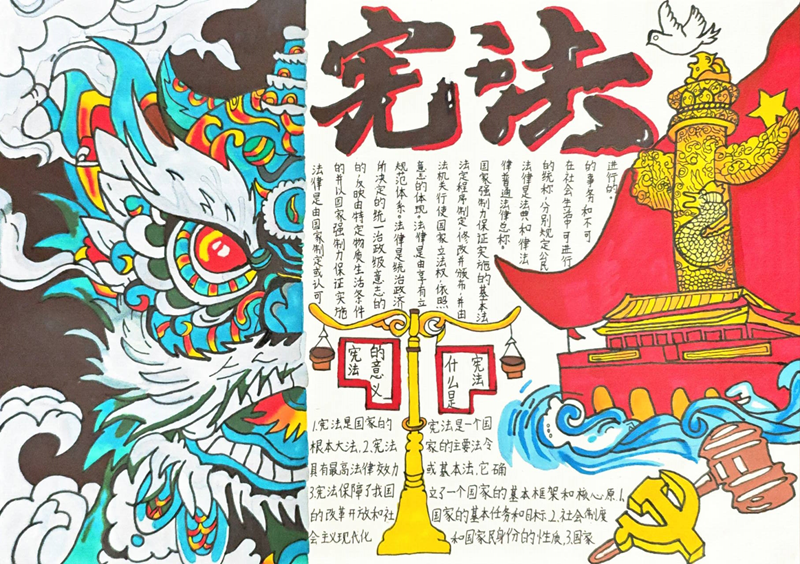 宪法
法律是由国家制定或认可
的并以国家强制力保证实施
的反映由特定物质生活条件
所决定的统一治政级意志的
规范体系。法律是统治政济
意志的体现。法律是由享有立
法机关行使国家立法权,依照
法定程序制定、修改并颁布,并由
国家强制力保证实施的基本法
律普通法律总称。
法律是法典和律法
的统称,分别规定公民
在社会生活中可进行
的事务和不可
进行的。
宪法
的意义
什么是
宪法
1.宪法是国家的
根本大法,2.宪法
具有最高法律效力
3.宪法保障了我国
的改革开放和社
会主义现代化
宪法是一个国
家的主要法令
或基本法,它确
立了一个国家的基本框架和核心原1.
国家的基本任务和目标2.社会制度
和国家民身份的性质,3.国家